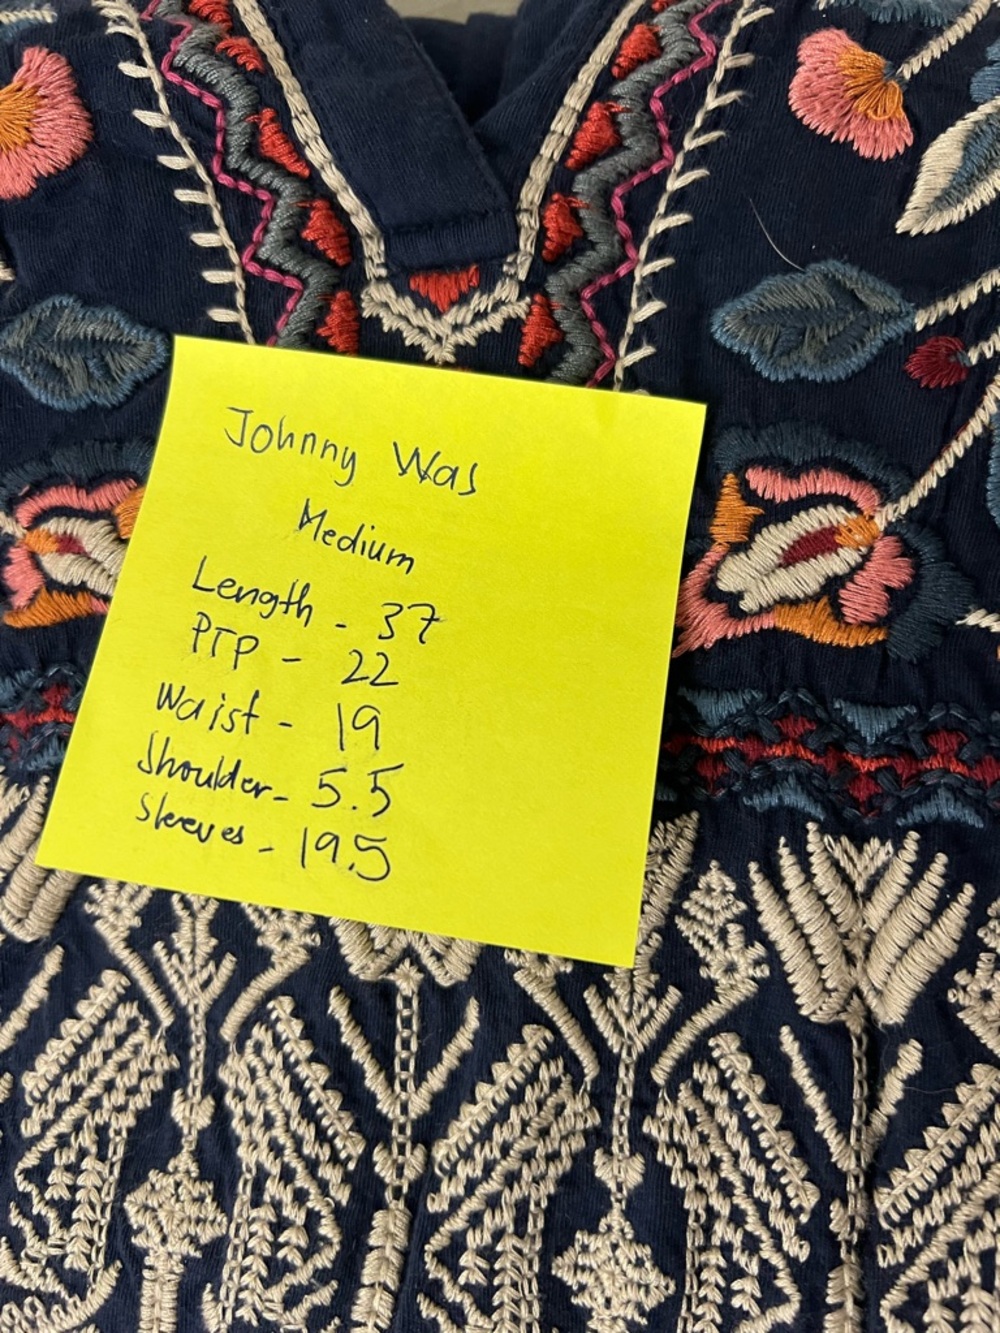 Johnny Was
Medium
Length - 37
PTP - 22
Waist - 19
Shoulder - 5.5
Sleeves - 19.5